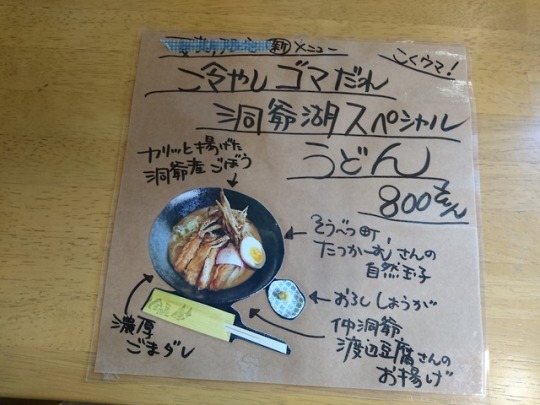 新メニュー
こくウマ!
冷やしゴマだれ
洞爺湖スペシャル
うどん
800えん
カリッと揚げた
洞爺産ごぼう
そうべつ町、
たつかーむさんの
自然玉子
おろししょうが
仲洞爺
渡辺豆腐さんの
お揚げ
濃厚
ごまダレ